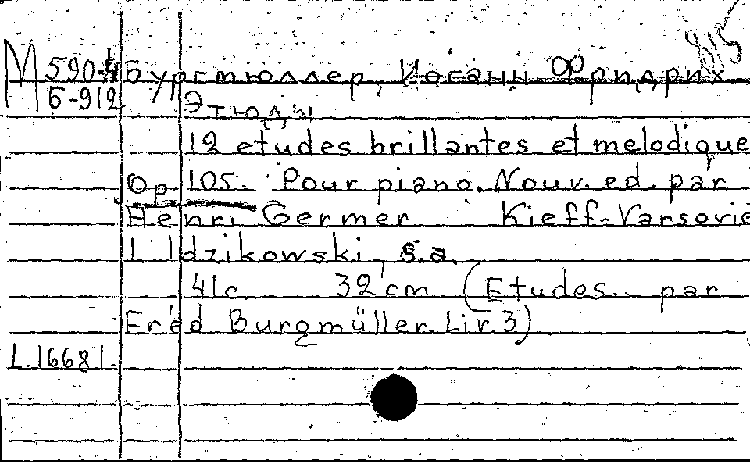 815
М 590-4 Бургмюллер, Иоганн Фридрих
Б-912 Этюды
12 etudes brillantes et melodique
Op. 105. Pour piano. Nouv. ed. par
Henri Germer Kieff-Varsovie
L Idzikowski, s.a.
41c 32 cm (Etudes par
Fred Burgmüller. Liv. 3)
L 16681